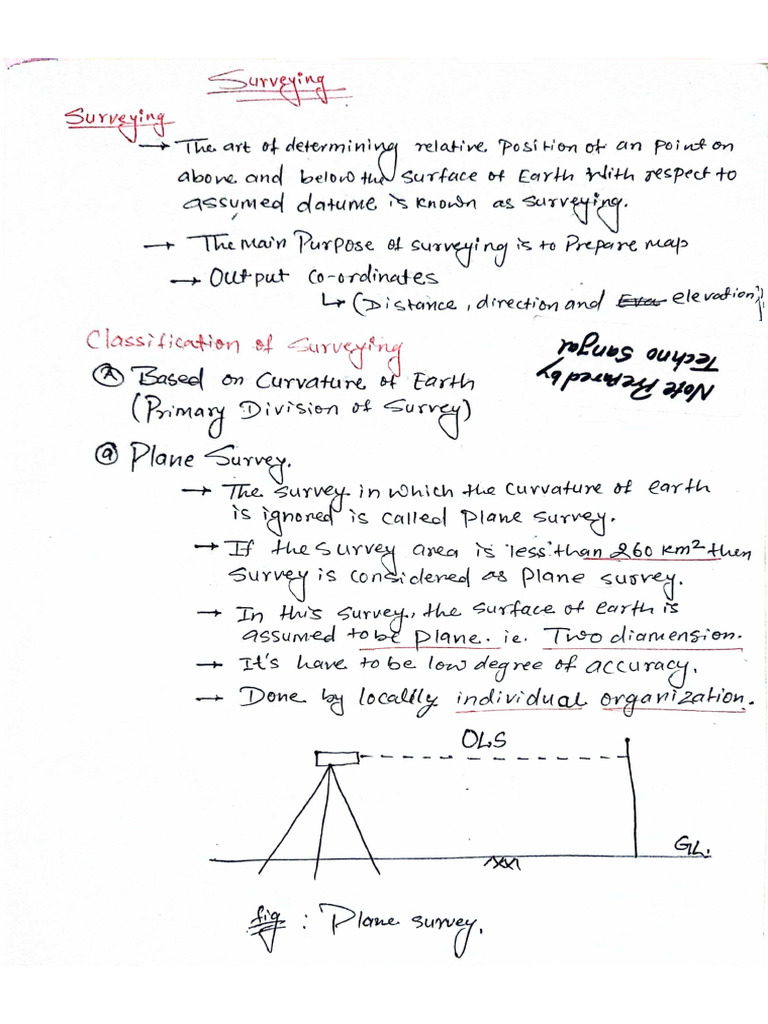 Surveying
Surveying
→ The art of determining relative position of an point on
above and below the surface of Earth with respect to
assumed datume is known as surveying.
→ The Main Purpose of surveying is to Prepare map
→ Output co-ordinates
↳ (Distance, direction and Eva elevation)
Classification of Surveying
Note Prepared by
Techno Sangal
Ⓐ Based on Curvature of Earth
(Primary Division of Survey)
ⓐ Plane Survey.
→ The survey in which the curvature of earth
is ignored is called Plane survey.
→ If the survey area is less than 260 km² then
survey is considered as Plane survey.
→ In this survey, the surface of earth is
assumed to be plane. ie. Two diamension.
→ It's have to be low degree of accuracy.
→ Done by locallly individual organization.
OLS
GL.
fig : Plane survey.